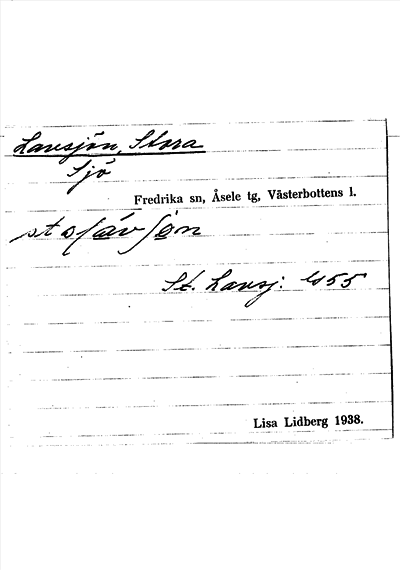 Lavsjön, Stora
Sjö
Fredrika sn, Åsele tg, Västerbottens l.
St. Lavsj: 55
Lisa Lidberg 1938.